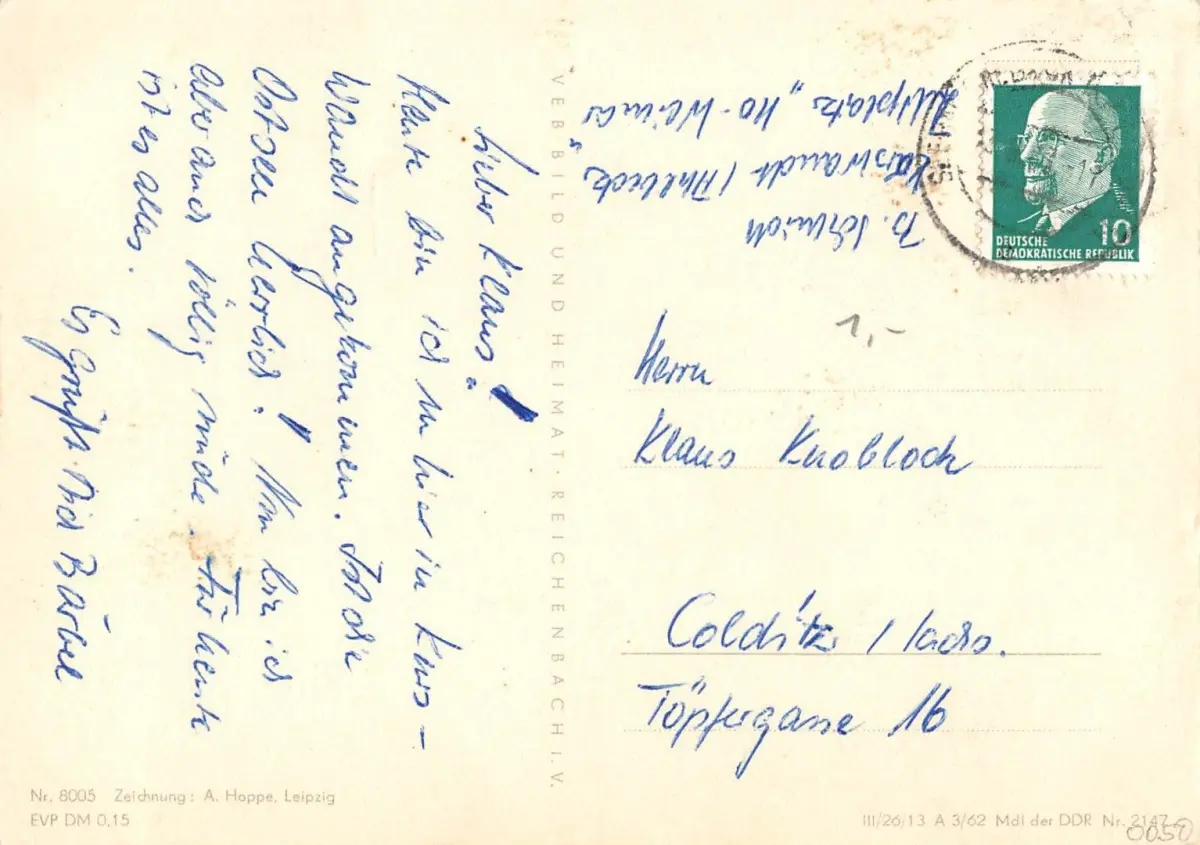 Lieber Klaus!
Heute bin ich nu hier in Kors-
wandt angekommen. Ist die
Ostsee herrlich! Nun bin ich
aber auch völlig müde. Für heute
ist es alles.
Es grüßt Dich Bärbel
VEB BILD UND HEIMAT · REICHENBACH I. V.
B. Schmidt
Korswandt / Ahlbeck
Zeltplatz „HO-Weimar"
DEUTSCHE
DEMOKRATISCHE REPUBLIK
10
1,-
Herrn
Klaus Knobloch
Colditz / Sachs.
Töpfergasse 16
Nr. 8005 Zeichnung: A. Hoppe, Leipzig
EVP DM 0,15
III/26/13 A 3/62 MdI der DDR Nr. 2147
0050